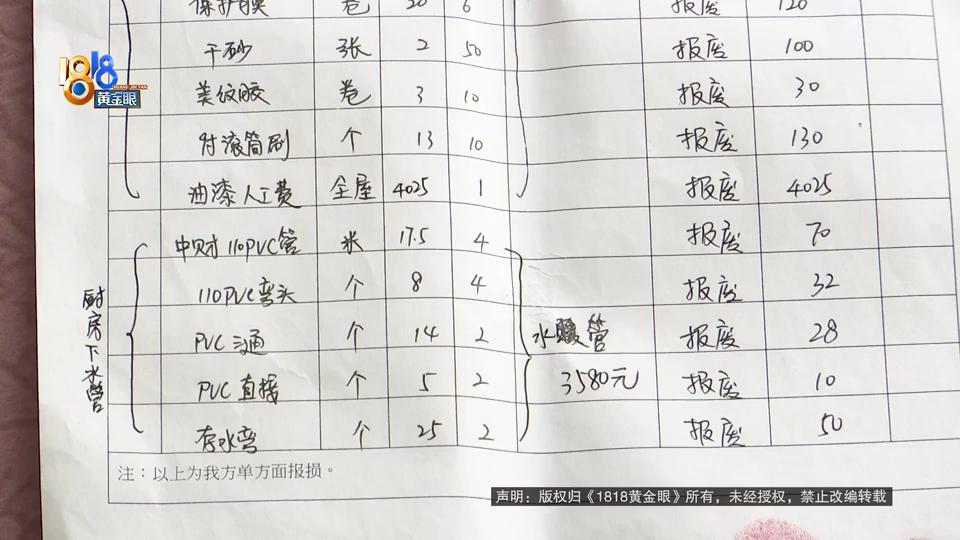 保护膜 卷 20 6 报废 120
干砂 张 2 50 报废 100
1818
黄金眼
美纹胶 卷 3 10 报废 30
对滚筒刷 个 13 10 报废 130
油漆人工费 全屋 4025 1 报废 4025
中财110PVC管 米 17.5 4 报废 70
110PVC弯头 个 8 4 报废 32
厨房下水管
PVC三通 个 14 2 水暖管 报废 28
PVC直接 个 5 2 3580元 报废 10
存水弯 个 25 2 报废 50
注：以上为我方单方面报损。
声明：版权归《1818黄金眼》所有，未经授权，禁止改编转载